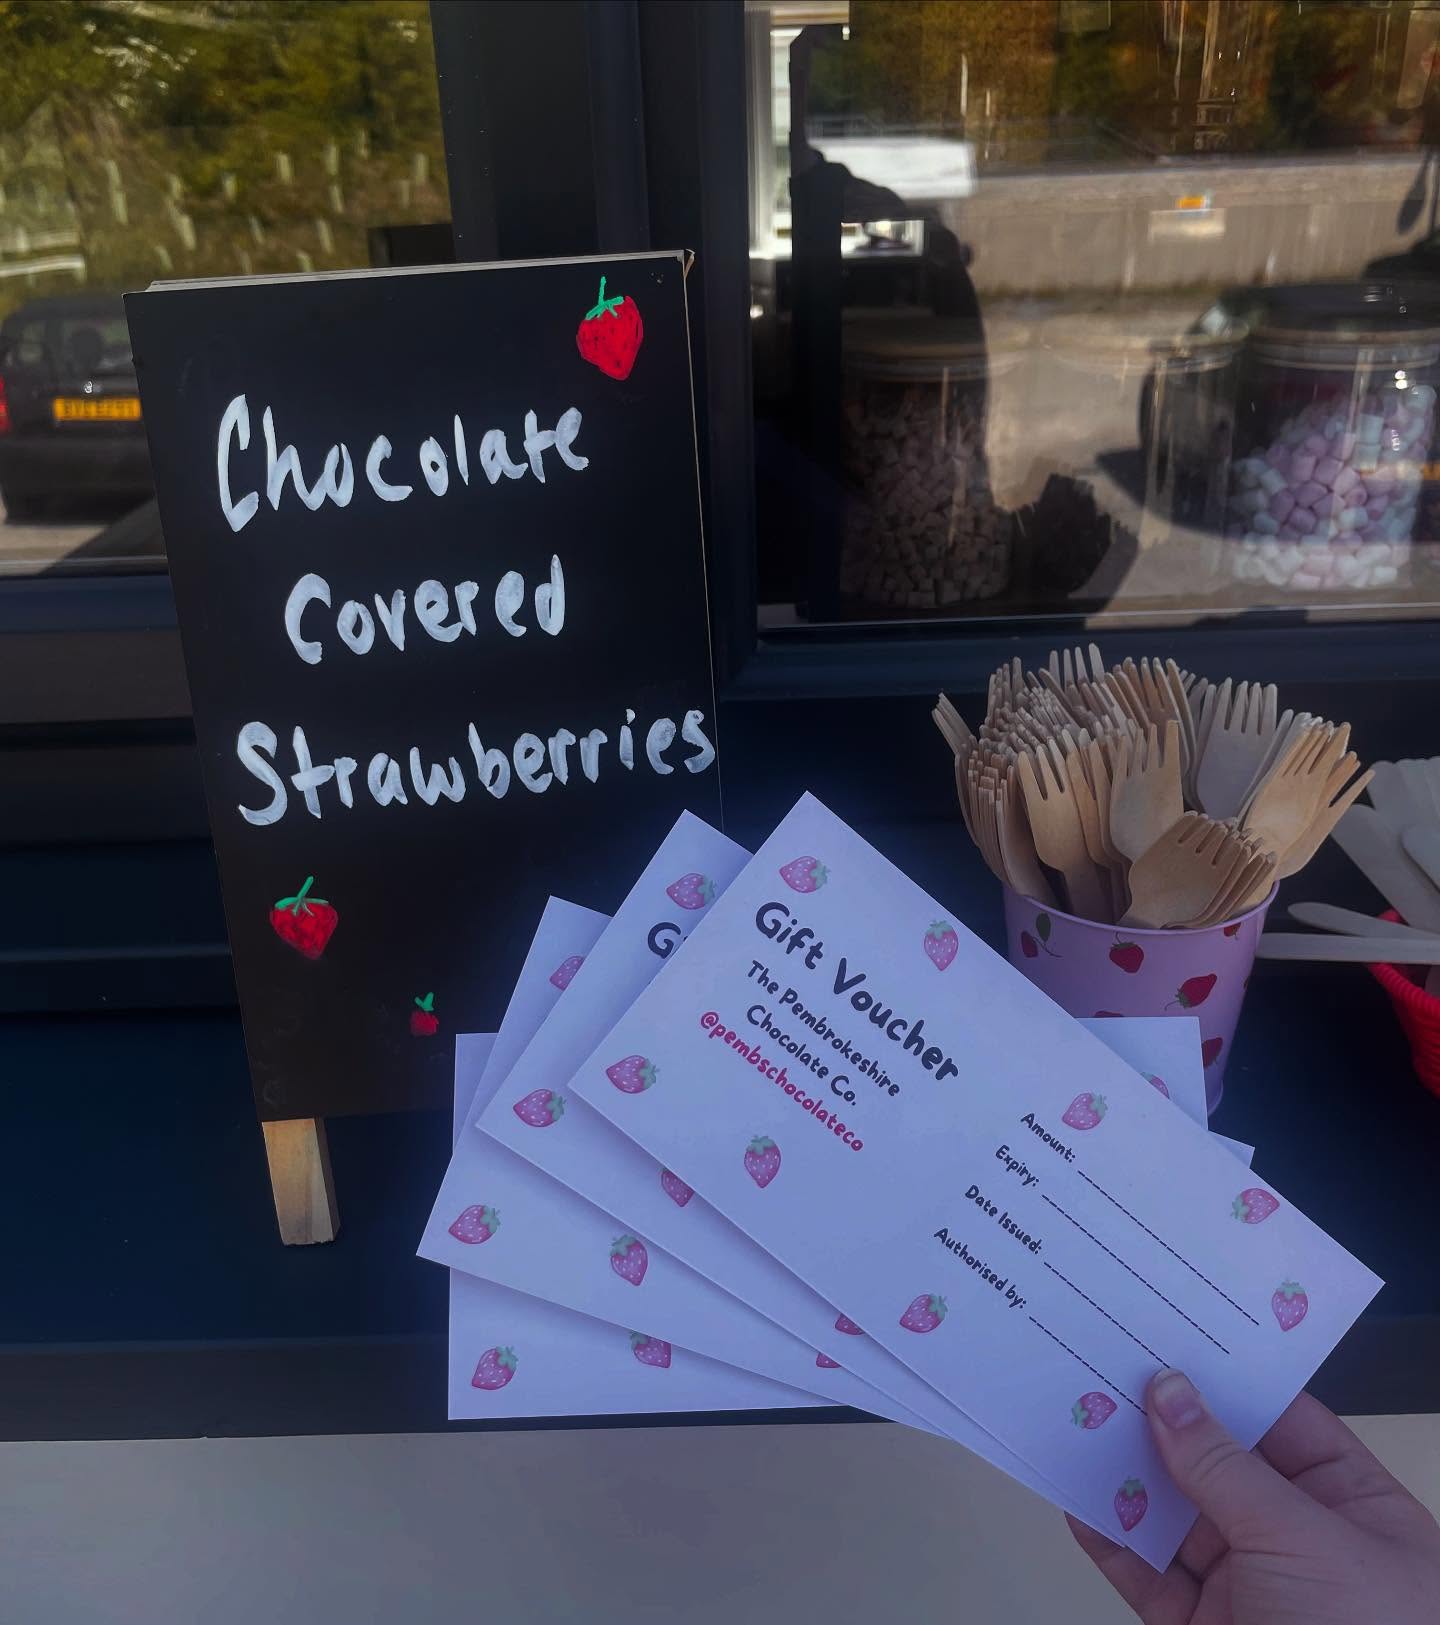 Chocolate
Covered
Strawberries
Gift Voucher
The Pembrokeshire
Chocolate Co.
@pembschocolateco
Amount:
Expiry:
Date Issued:
Authorised by:
G